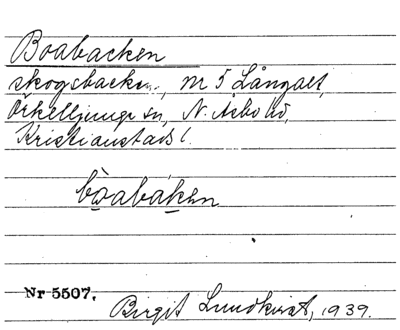 Boabacken
skogsbacken, m 5 Långalt,
Örkelljunga sn, N. Åsbo hd,
Kristianstads l.
bòabáken
Nr 5507.
Birgit Lundkvist, 1939.